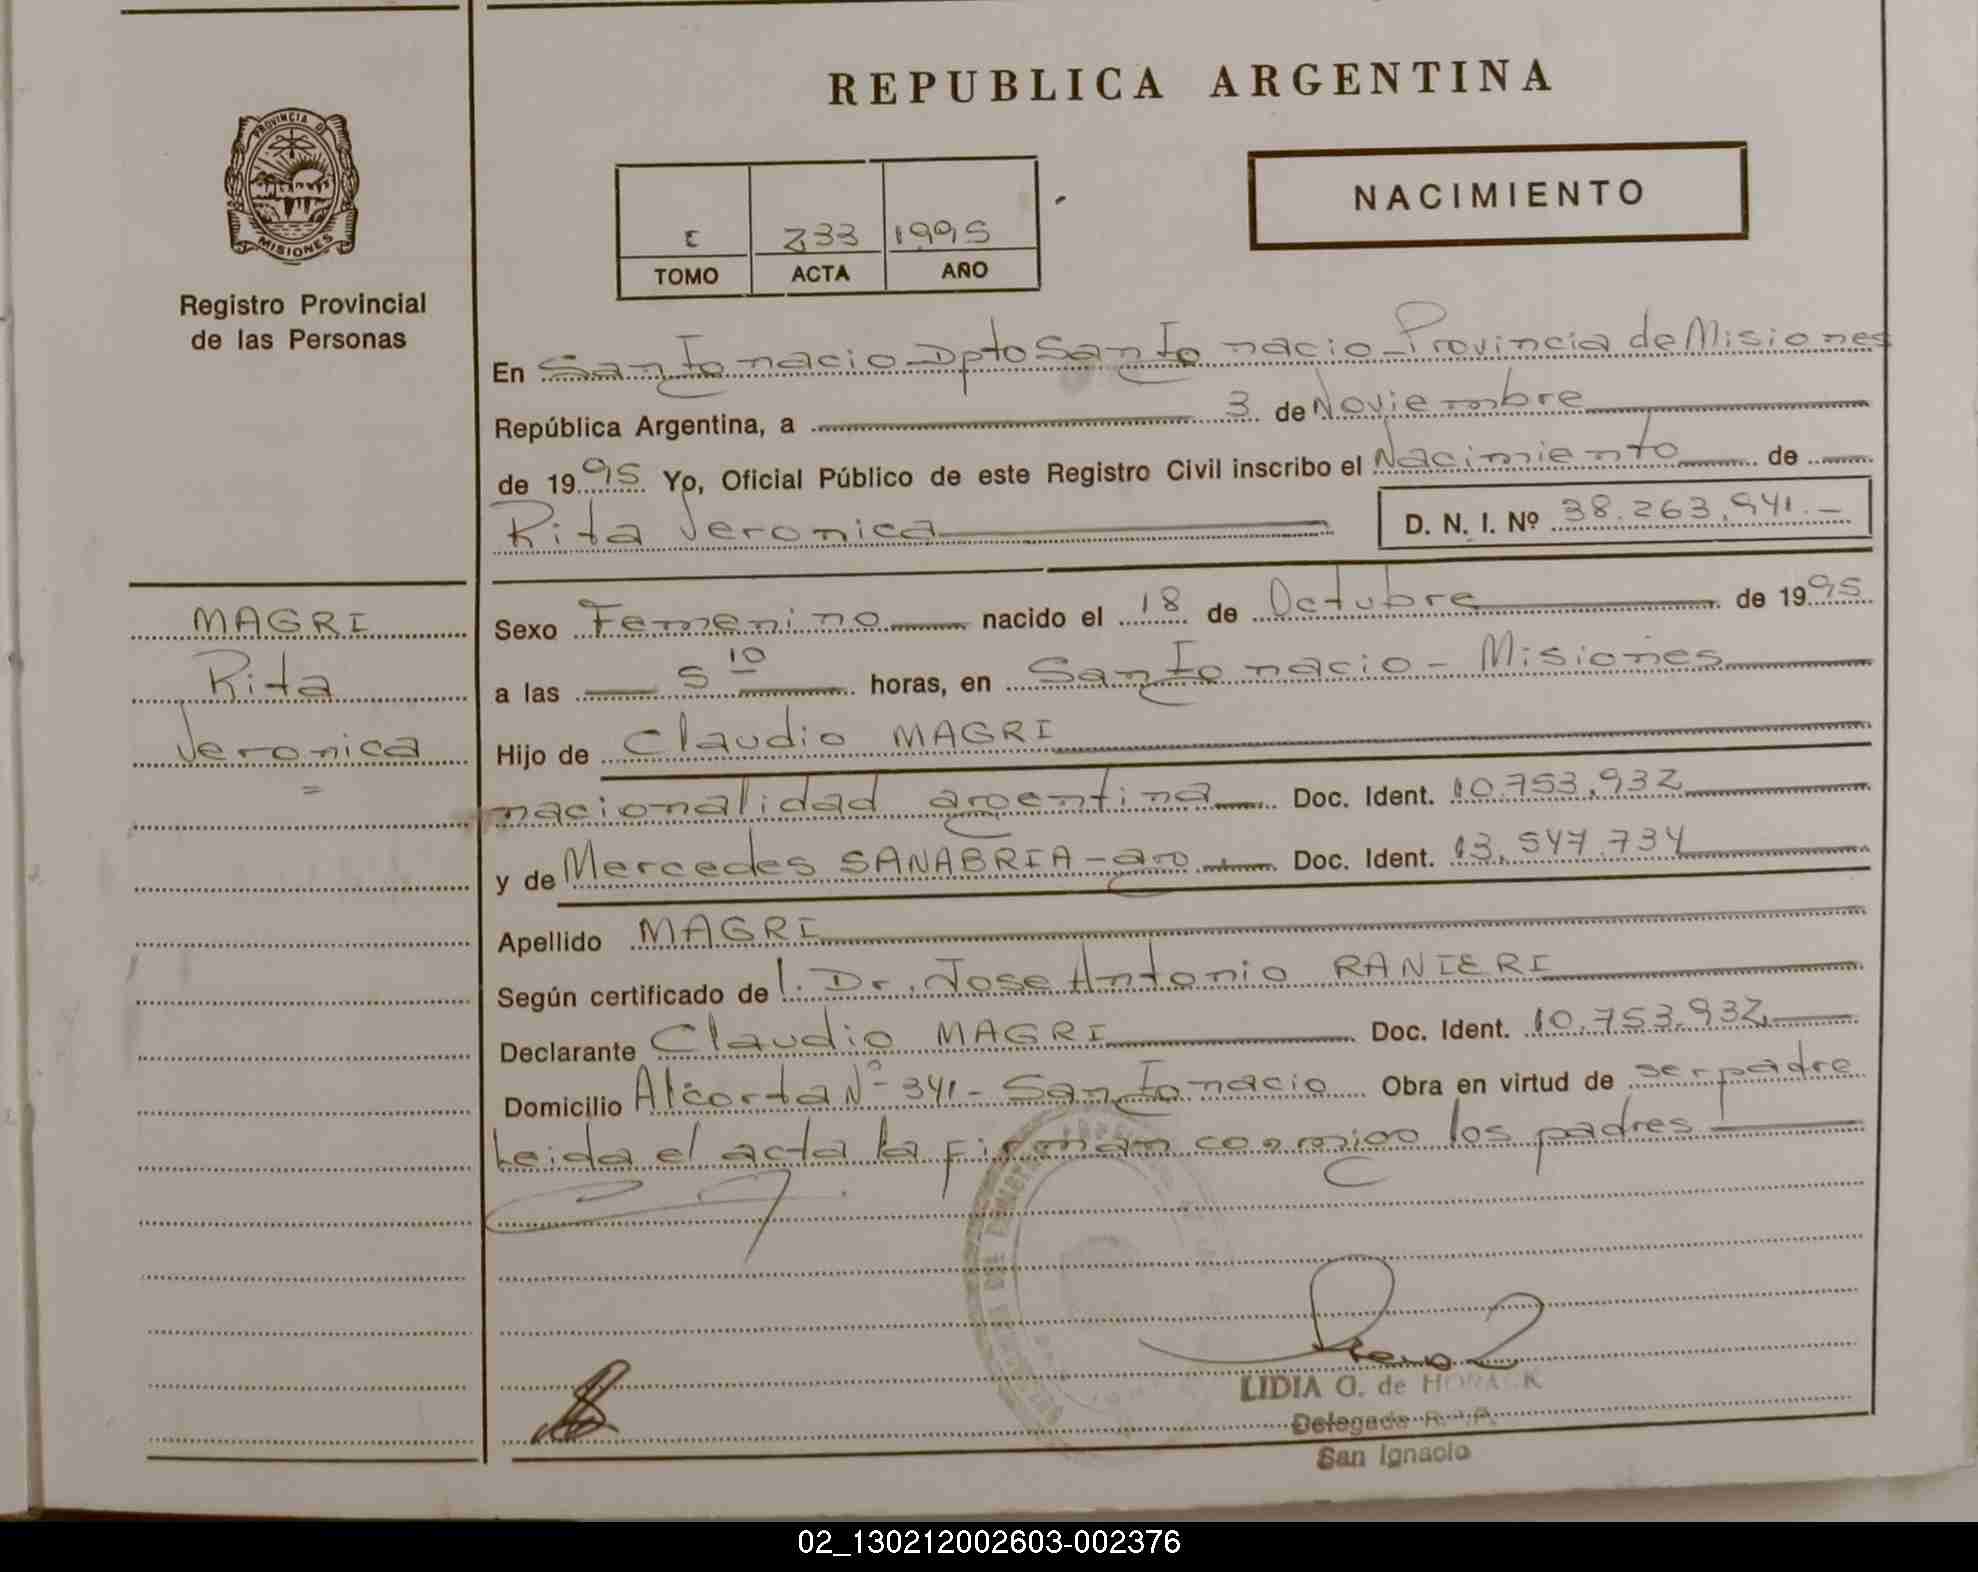 REPUBLICA ARGENTINA
PROVINCIA D
MISIONES
Registro Provincial
de las Personas
NACIMIENTO
E 233 1995
TOMO ACTA AÑO
En San Ignacio - Dpto San Ignacio - Provincia de Misiones
República Argentina, a 3 de Noviembre
de 1995 Yo, Oficial Público de este Registro Civil inscribo el Nacimiento de
Rita Veronica D. N. I. Nº 38.263.941.-
MAGRI
Rita
Veronica
=
Sexo Femenino nacido el 18 de Octubre de 1995
a las 5 10 horas, en San Ignacio - Misiones
Hijo de Claudio MAGRI
nacionalidad argentina Doc. Ident. 10.753.932
y de Mercedes SANABRIA - arg. Doc. Ident. 13.547.734
Apellido MAGRI
Según certificado de l. Dr. Jose Antonio RANIERI
Declarante Claudio MAGRI Doc. Ident. 10.753.932
Domicilio Alcorta Nº 341 - San Ignacio Obra en virtud de ser padre
Leida el acta la firman conmigo los padres
LIDIA O. de HORACK
Delegada R.P.P.
San Ignacio
02_130212002603-002376